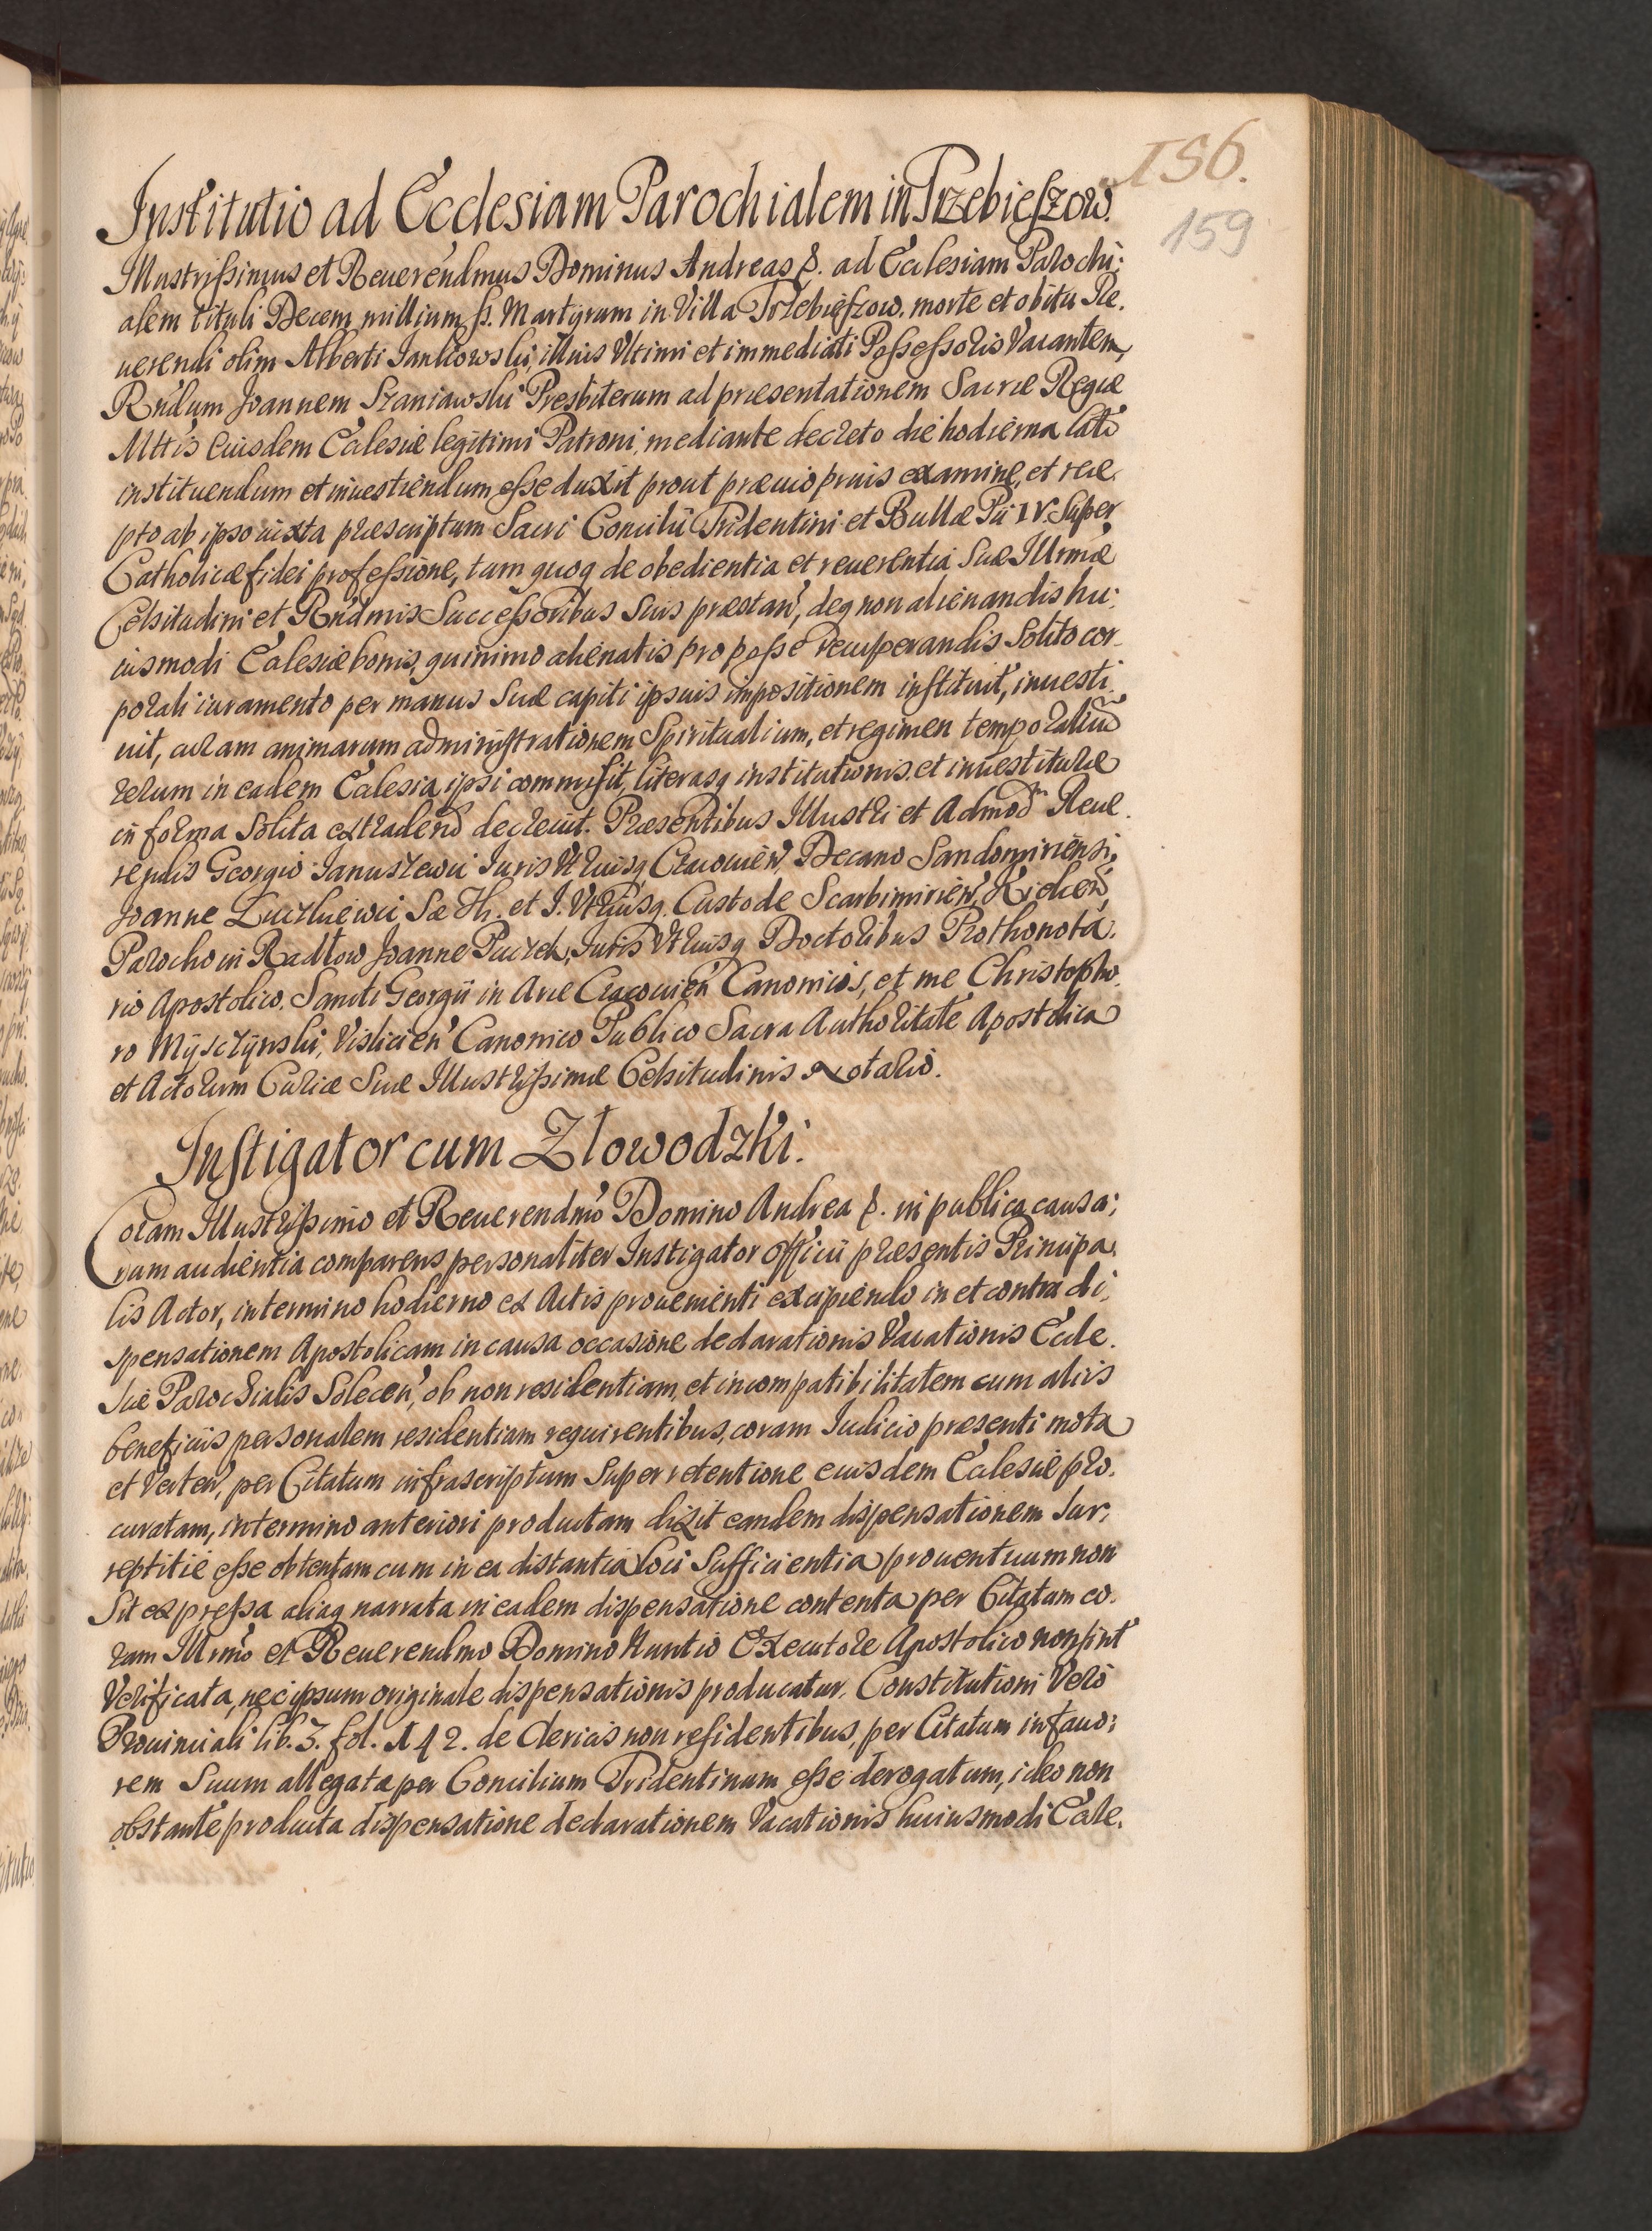 156.
159
Institutio ad Ecclesiam Parochialem in Trzebieszow.
Illustrissimus et Reuerendmus Dominus Andreas &. ad Ecclesiam Parochi:
alem tituli Decem millium ss. Martyrum in Villa Trzebieszow. morte et obitu Re.
uerendi olim Alberti Jankowski, illius Vltimi et immediati Possessoris Vacantem,
Rndum Joannem Szaniawski Presbiterum ad præsentationem Sacræ Regiæ
Mttis Euisdem Eclesiæ legitimi Patroni, mediante decreto die hodierna lato
instituendum et inuestiendum esse duxit prout præuio pruis examine, et rece
pto ab ipso iuxta præscriptum Sacri Concilii Tridentini et Bullæ Pii IV. Super
Catholicæ fidei professione, tam quoq de obedientia et reuerentia Suæ Illrmæ
Celsitudini et Rndmis Successoribus Suis præstan, deq non alienandis hu:
iusmodi Eclesiæ bonis, quinimo alienatis pro posse recuperandis Solito cor
porali iuramento per manus Suæ capiti ipsuis impositionem instituit, inuesti
uit, curam animarum administrationem Spiritualium, et regimen temporalium
rerum in eadem Eclesia, ipsi commisit, literasq institutionis et inuestituræ
in forma Solita extradend decreuit. Præsentibus Illustri et Admod Reue.
rendis Georgio Januszewic Juris Vtriusq Cracouien, Decano Sandomiriensi,
Joanne Luczkiewic Sæ Th. et J. Vtriusq. Custode Scarbimirien, Kielcen,
Parocho in Radłow Joanne Paczek, Juris Vtriusq Doctoribus Prothonota.
rio Apostolico. Sancti Georgii in Arce Cracouien Canonicis, et me Christopho.
ro Myszynski, Vislicien Canonico Publico Sacra Authoritate Apostolica
et Actorum Curiæ Suæ Illustrissimæ Celsitudinis Notario.
Instigator cum Złowodzki.
Coram Illustrissimo et Reuerendmo Domino Andrea &. in publica causa:
rum audientia comparens personaliter Instigator officii præsentis Principa.
lis Actor, in termino hodierno ex Actis prouenienti excipiendo in et contra di,
spensationem Apostolicam in causa occasione declarationis Vacationis Eccle.
siæ Parochialis Solecen, ob non residentiam, et incompatibilitatem cum aliis
beneficiis personalem residentiam requirentibus, coram Judicio præsenti mota
et Verten, per Citatum infrascriptum Super retentione euisdem Eclesiæ pro.
curatam, in termino anteriori productam dixit eandem dispensationem Sur,
reptitie esse obtentam cum in ea distantia loci Sufficientia prouentuum non
Sit expressa aliaq narrata in eadem dispensatione contenta per Citatum co.
ram Illrmo et Reuerendmo Domino Nuntio Executore Apostolico non sint
Verificata, nec ipsum originale dispensationis producatur, Constitutioni Vero
Prouinciali lib. 3. fol. 142. de Clericis non residentibus, per Citatum in fauo:
rem Suum allegatæ per Concilium Tridentinum esse derogatum, ideo non
obstante producta dispensatione declarationem Vacationis huiusmodi Eccle.